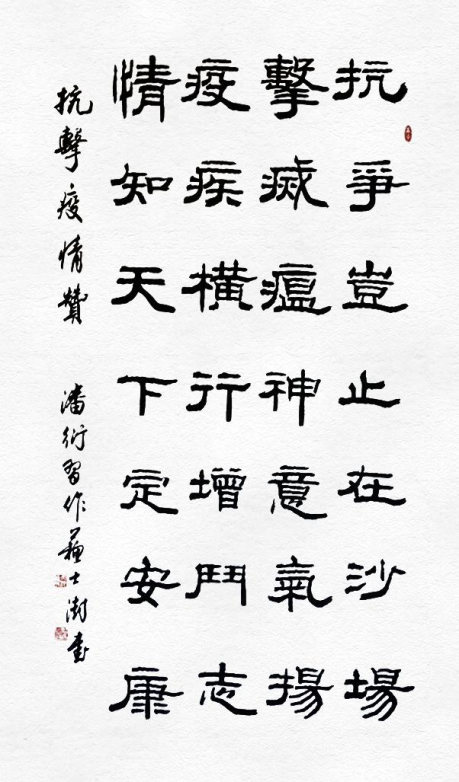 抗爭豈止在沙場
擊滅瘟神意氣揚
疫疾橫行增鬥志
情知天下定安康
抗擊疫情贊 潘衍習作蘇士澍書